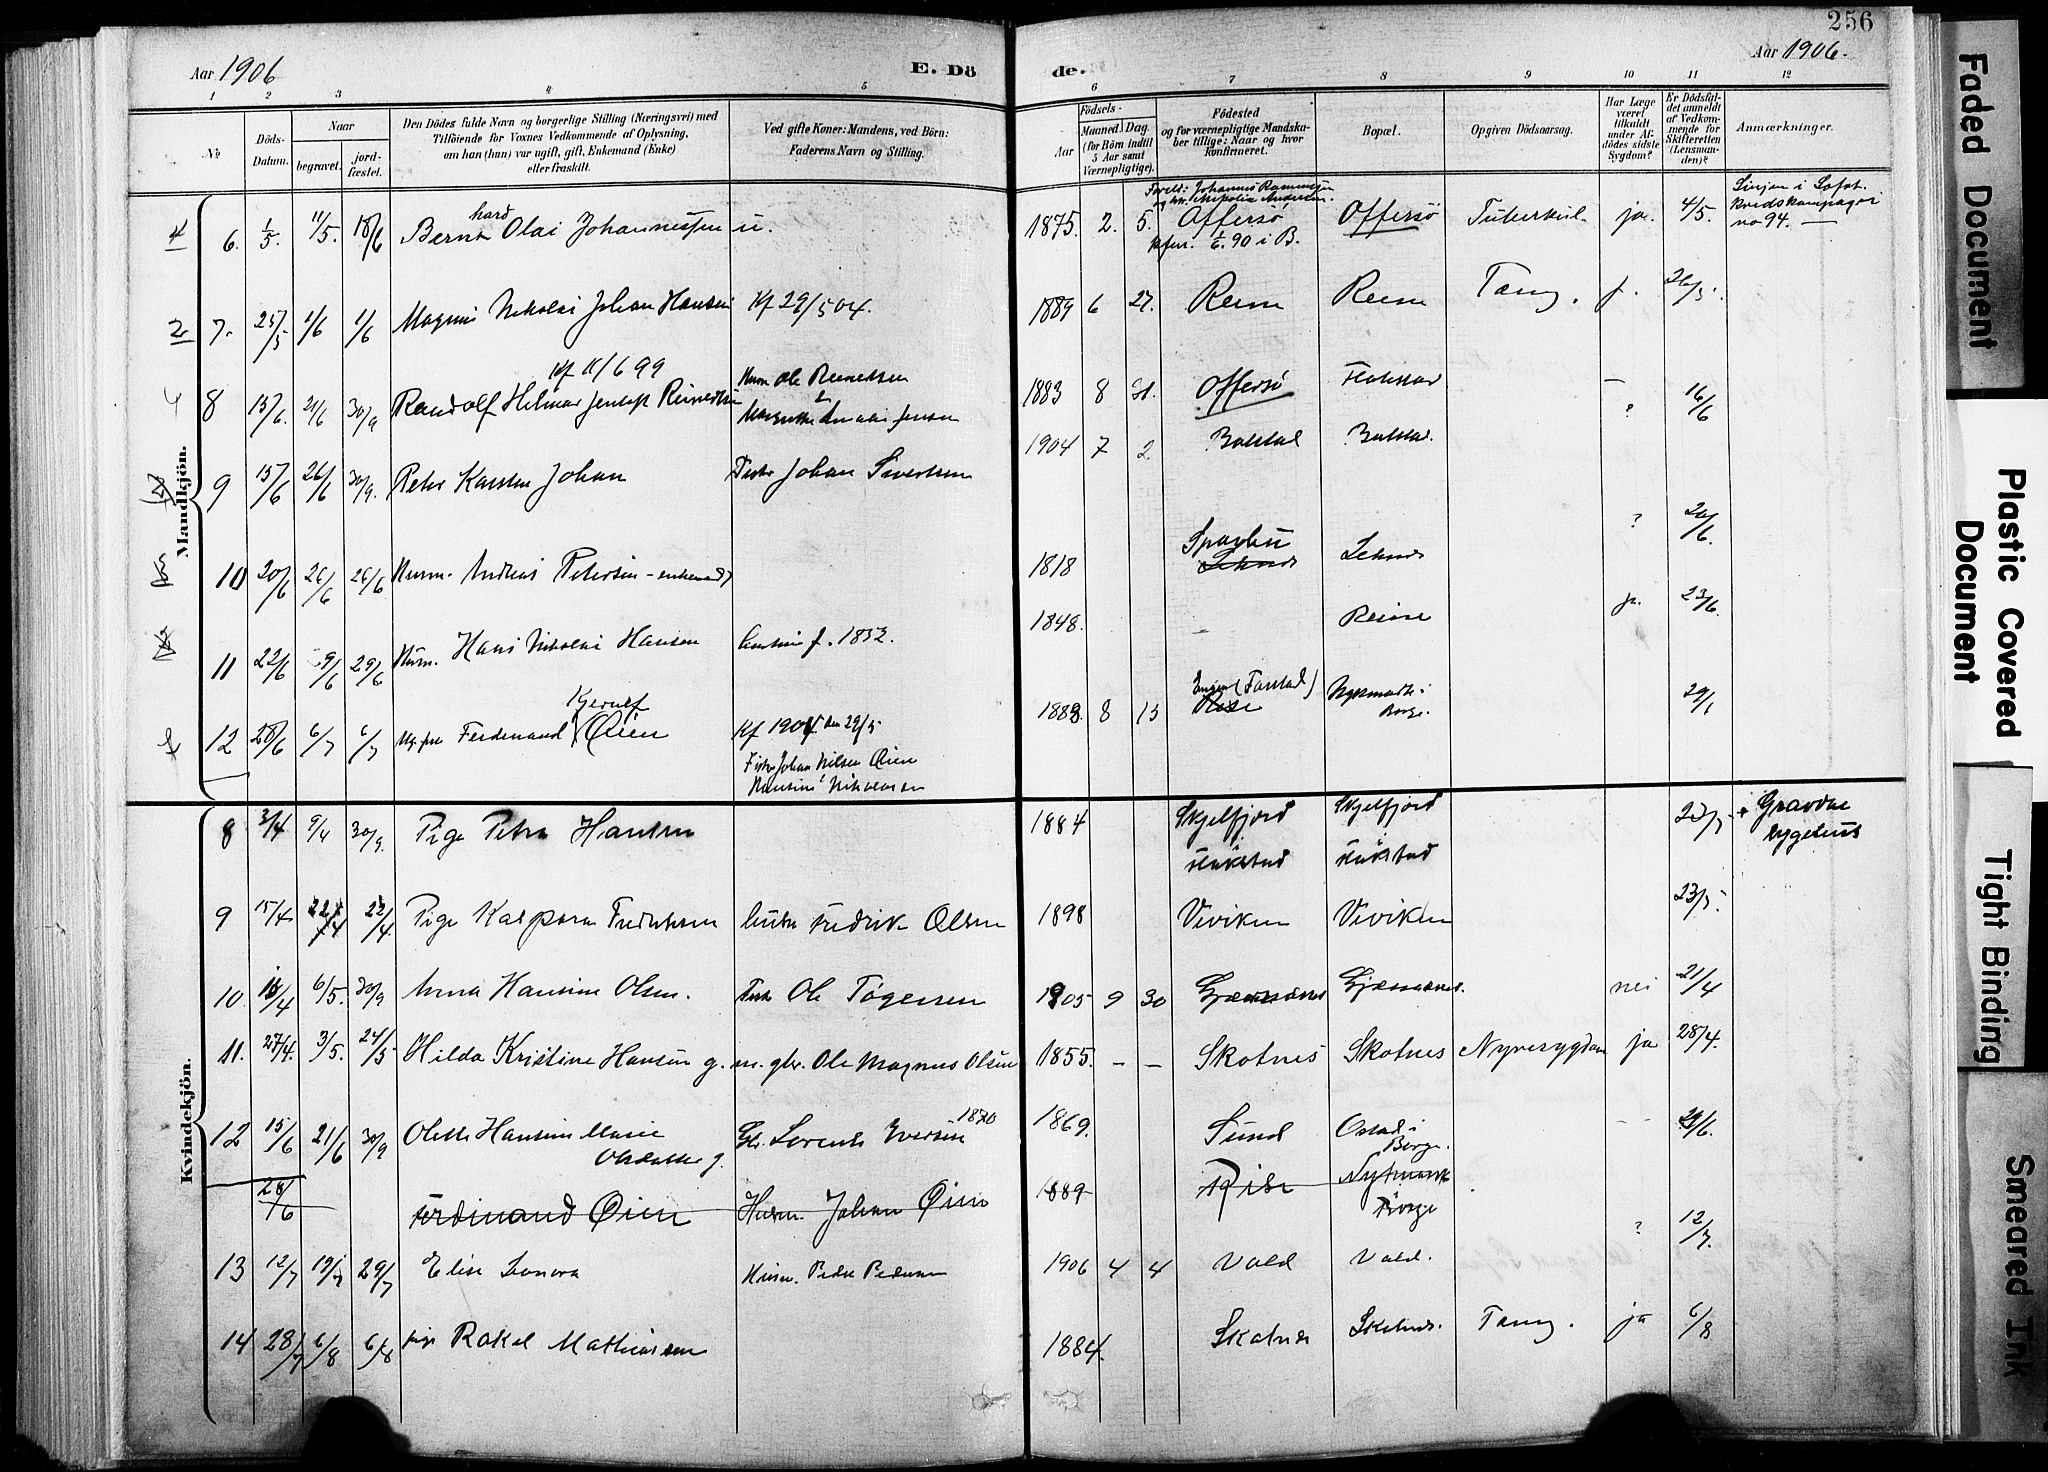 256
Aar 1906
E. Dö
de.
Aar 1906.
1 2 3 4 5 6 7 8 9 10 11 12
№
Döds-
Datum.
Naar
begravet.
jord-
fæstet.
Den Dödes fulde Navn og borgerlige Stilling (Næringsvei) med
Tilföiende for Voxnes Vedkommende af Oplysning,
om han (hun) var ugift, gift, Enkemand (Enke)
eller fraskilt.
Ved gifte Koner: Mandens, ved Börn:
Faderens Navn og Stilling.
Födsels-
Aar
Maaned. Dag.
(for Börn indtil
5 Aar samt
Værnepligtige).
Födested
og for værnepligtige Mandska-
ber tillige: Naar og hvor
konfirmeret.
Bopæl.
Opgiven Dödsaarsag.
Har Læge
været
tilkaldt
under Af-
dödes sidste
Sygdom?
Er Dödsfal-
det anmeldt
af Vedkom-
mende for
Skifteretten
(Lensman-
den)?
Anmærkninger.
Mandkjön.
6. 1/5. 11/5. 18/6 Bernhard Olai Johannessen u. 1875. 2. 5. Offersö Offersö Tuberkul. ja. 4/5.
Linjen i Lofot.
Kredskompagni
no 94.
kfm. 1/6. 90 i B.
7. 25/5 1/6 1/6 Magnus Nikolai Johan Hansen Kf 29/5 04. 1889 6 27. Reine Reine Tæring. j. 26/5.
Kf 11/6 99
8 15/6. 21/6 30/9 Randolf Hilmar Jentoft Reinertsen Husm Ole Reinertsen 1883 8 Offersö Flakstad 16/6
9 15/6 26/6 30/9. Peter Karsten Johan Fisker Johan Sivertsen 1904 7 2. Balstad Balstad. ?
10 20/6 26/6 26/6 Husm. Andreas Petersen - enkemand 1818 Sparbu Leknes ? 20/6.
11 22/6 29/6 29/6 Husm. Hans Nikolai Hansen f. 1852. 1848. Reine ja. 23/6.
Kjerulf
12 28/6 6/7 6/7 Ug. fisk Ferdinand Øien Kf 1904 den 29/5 1889 8 13 (Farstad) Borge. 29/6
Fisker Johan Nilsen Øien
Kvindekjön.
8 3/4 9/4 30/9. Pige Petra Hansen 1884 Skjelfjord Skjelfjord 23/5. Gravdal
Flakstad Flakstad sygehus
9 15/4 22/4 22/4 Pige Kaspara Fredriksen Fredrik Olsen 1898 Veviken Veviken 23/5.
10. 18/4 6/5. 30/9 Anna Hansine Olsen. Fisk Ole Tøgersen 1905 9 30 Gjæssanes Gjæssanes. nei 21/4
11. 27/4. 3/5. 24/5 Hilda Kristine Hansen g. m. gbr. Ole Magnus Olsen 1855. - - Skotnes Skotnes Nyresygdom ja 28/4.
12 15/6 21/6 30/9 Olette Hansine Marie Olsdatter g. Gbr. Lorents Eversen 1870 1869. Sund Ostad i Borge. 29/6.
28/6 Ferdinand Øien Husm. Johan Øien 1889 Rise Nykmark Borge
13 12/7 19/7 29/7 Elise Leonora Husm. Peder Pedersen 1906 4 4 Vold Vold. ? 12/7.
14 28/7 6/8 6/8 pige Rakel Mathiassen 1884. Skotnes Skotnes. Tæring. ja 6/8
Faded Document
Plastic Covered
Document
Tight Binding
Smeared Ink